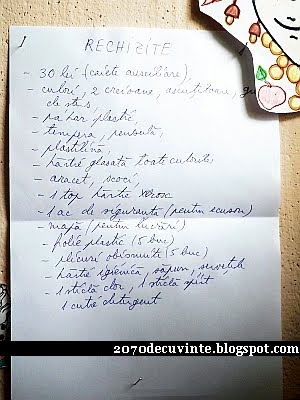 RECHIZITE
- 30 lei (caiete auxiliare),
- culori, 2 creioane, ascuțitoare, gu
- pahar plastic,
- tempera, pensulă,
- plastilină,
- hârtie glasată toate culorile
- aracet, scoci,
- 1 top hârtie xerox
- 1 ac de siguranță (pentru ecuson)
- mapă (pentru lucrări)
- folie plastic (5 buc)
- plicuri obișnuite (5 buc)
- hârtie igienică, săpun, servețele
- 1 sticlă clor, 1 sticlă spirt
1 cutie detergent
2070decuvinte.blogspot.com